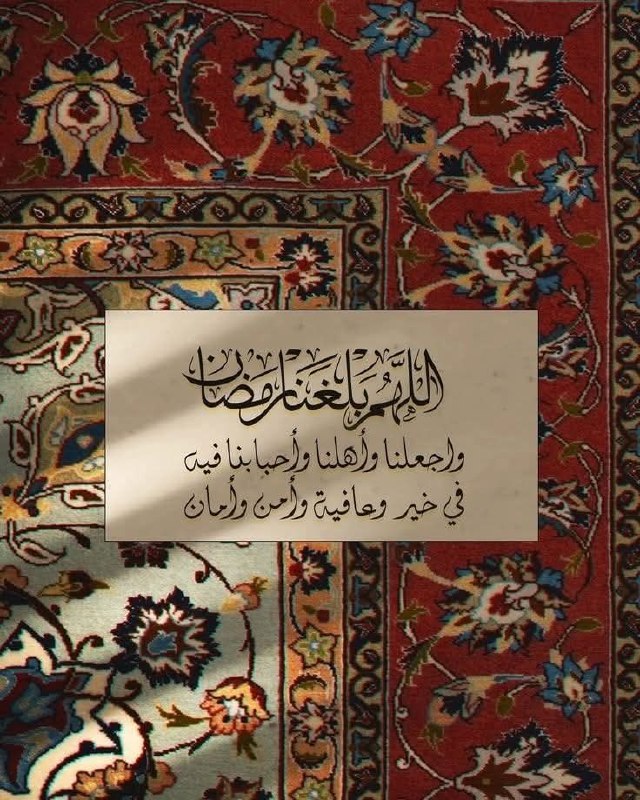 اللَّهُمَّ بَلِّغْنَا رَمَضَان
واجعلنا وأهلنا وأحبابنا فيه
في خير وعافية وأمن وأمان